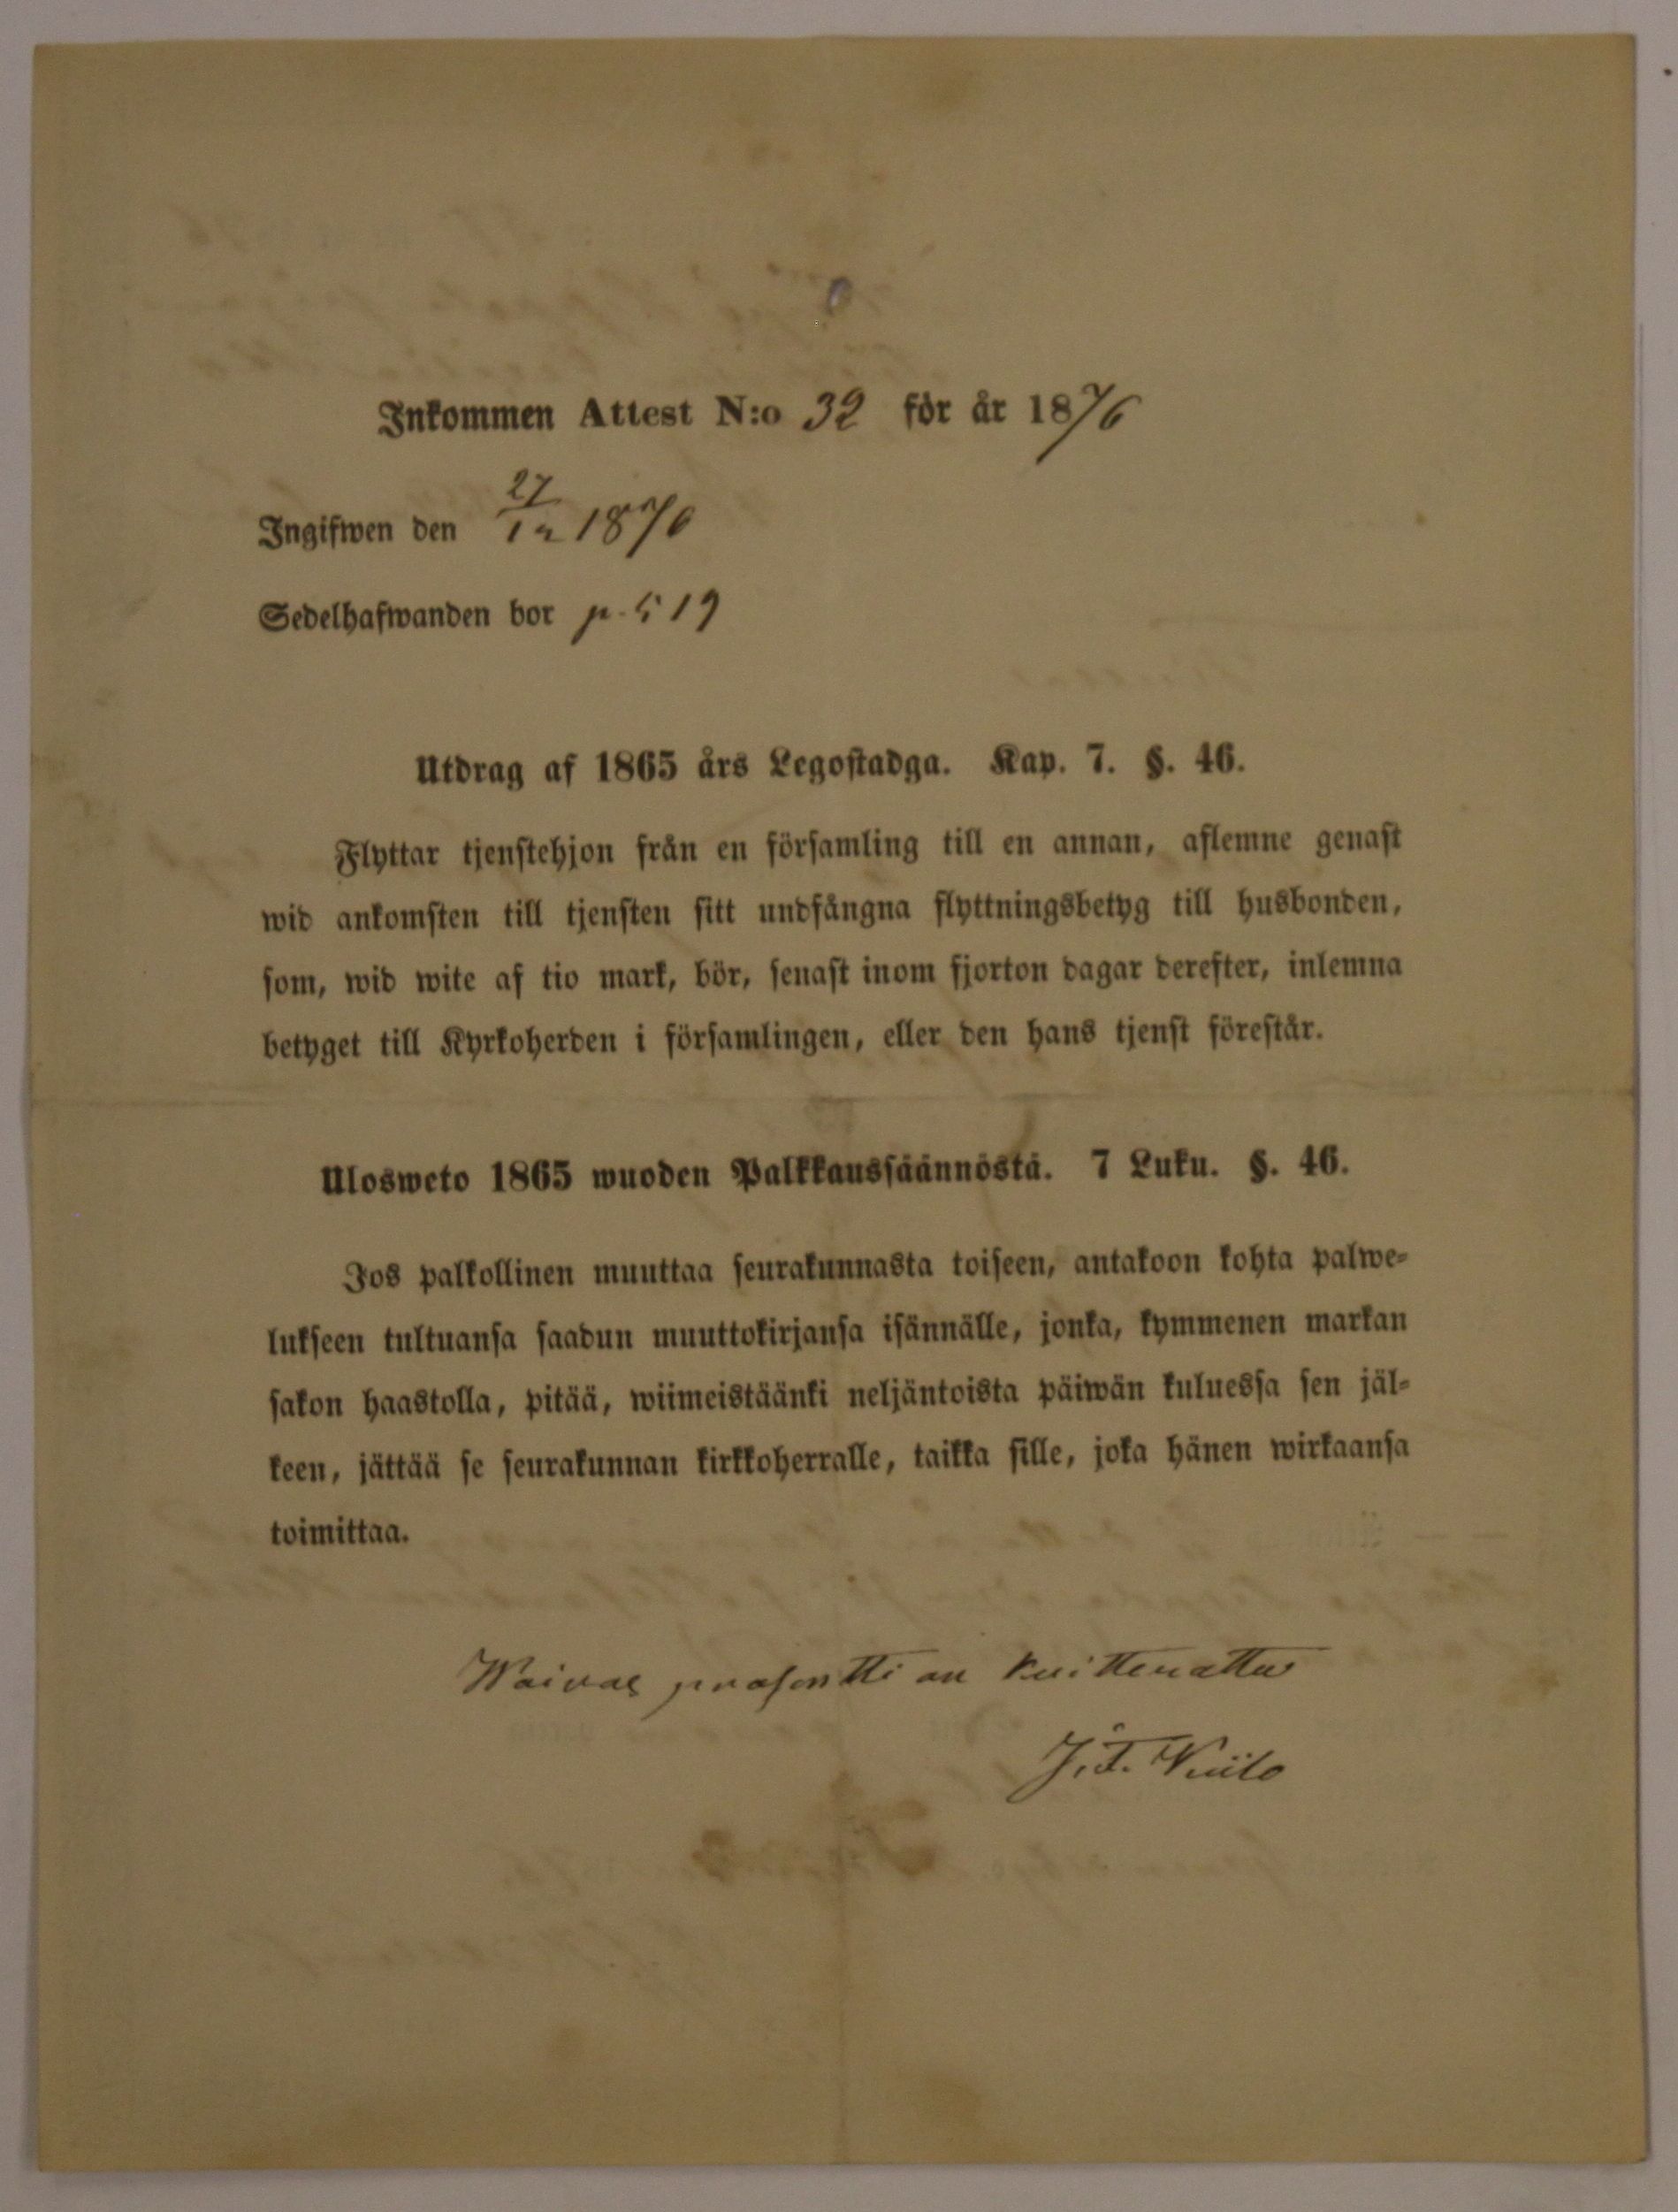 Inkommen Attest N:o 32 för år 1876
Ingifwen den 27/12 1876
Sedelhafwanden bor p. 519
Utdrag af 1865 års Legostadga. Kap. 7. §. 46.
Flyttar tjenstehjon från en församling till en annan, aflemne genast
wid ankomsten till tjensten sitt undfångna flyttningsbetyg till husbonden,
som, wid wite af tio mark, bör, senast inom fjorton dagar derefter, inlemna
betyget till Kyrkoherden i församlingen, eller den hans tjenst förestår.
Ulosweto 1865 wuoden Palkkaussäännöstä. 7 Luku. §. 46.
Jos palkollinen muuttaa seurakunnasta toiseen, antakoon kohta palwe-
lukseen tultuansa saadun muuttokirjansa isännälle, jonka, kymmenen markan
sakon haastolla, pitää, wiimeistäänki neljäntoista päiwän kuluessa sen jäl-
keen, jättää se seurakunnan kirkkoherralle, taikka sille, joka hänen wirkaansa
toimittaa.
Waivas prosentti on kuittenattu
J. F.